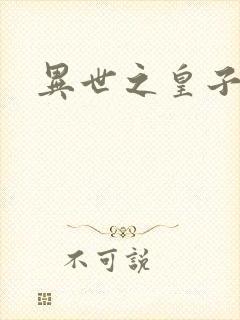 異世之皇子
不可説